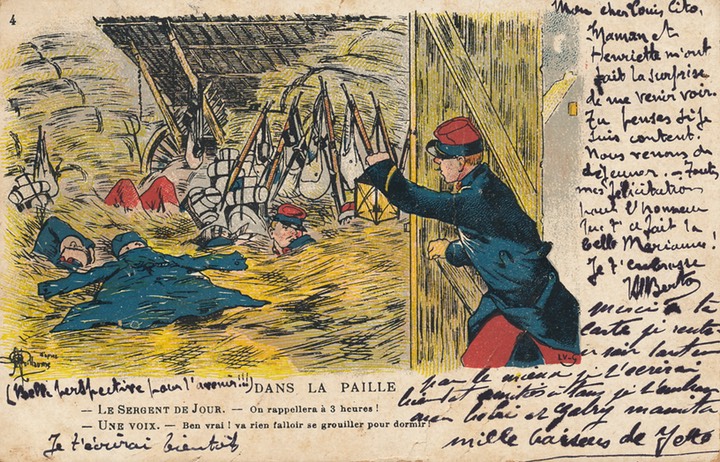 4
DANS LA PAILLE
— LE SERGENT DE JOUR. — On rappellera à 3 heures !
— UNE VOIX. — Ben vrai ! va rien falloir se grouiller pour dormir !
LV & Cie
(Belle perspective pour l'avenir!!!)
Je t'écrirai bientôt
Mon cher Louis
Maman et
Henriette m'ont
fait la surprise
de me venir voir.
Tu penses si je
suis content.
Nous venons de
déjeuner. — Toutes
mes félicitations
pour l'honneur
que t'a fait la
belle Marianne !
Je t'embrasse
merci de ta
carte je
par le
bientôt amitiés à tous je t'embrasse
mille baisers de